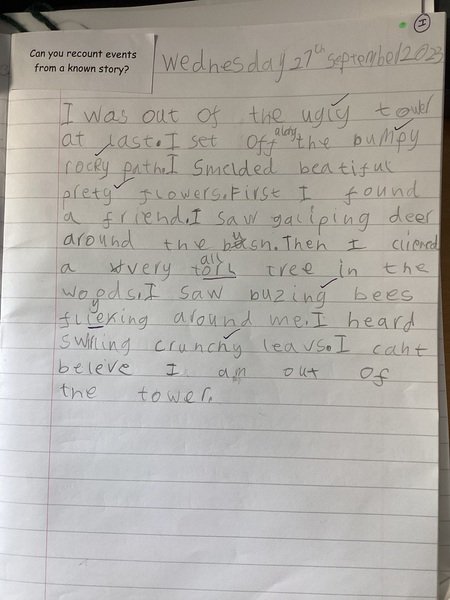 I
Can you recount events
from a known story?
Wednesday 27th september 2023
I was out of the ugly tower
at last. I set off along the bumpy
rocky path. I smelded beatiful
prety flowers. First I found
a friend. I saw galiping deer
around the bush. Then I cliened
a very tall tree in the
woods. I saw buzing bees
flying around me. I heard
swirling crunchy leavs. I cant
beleve I am out of
the tower.